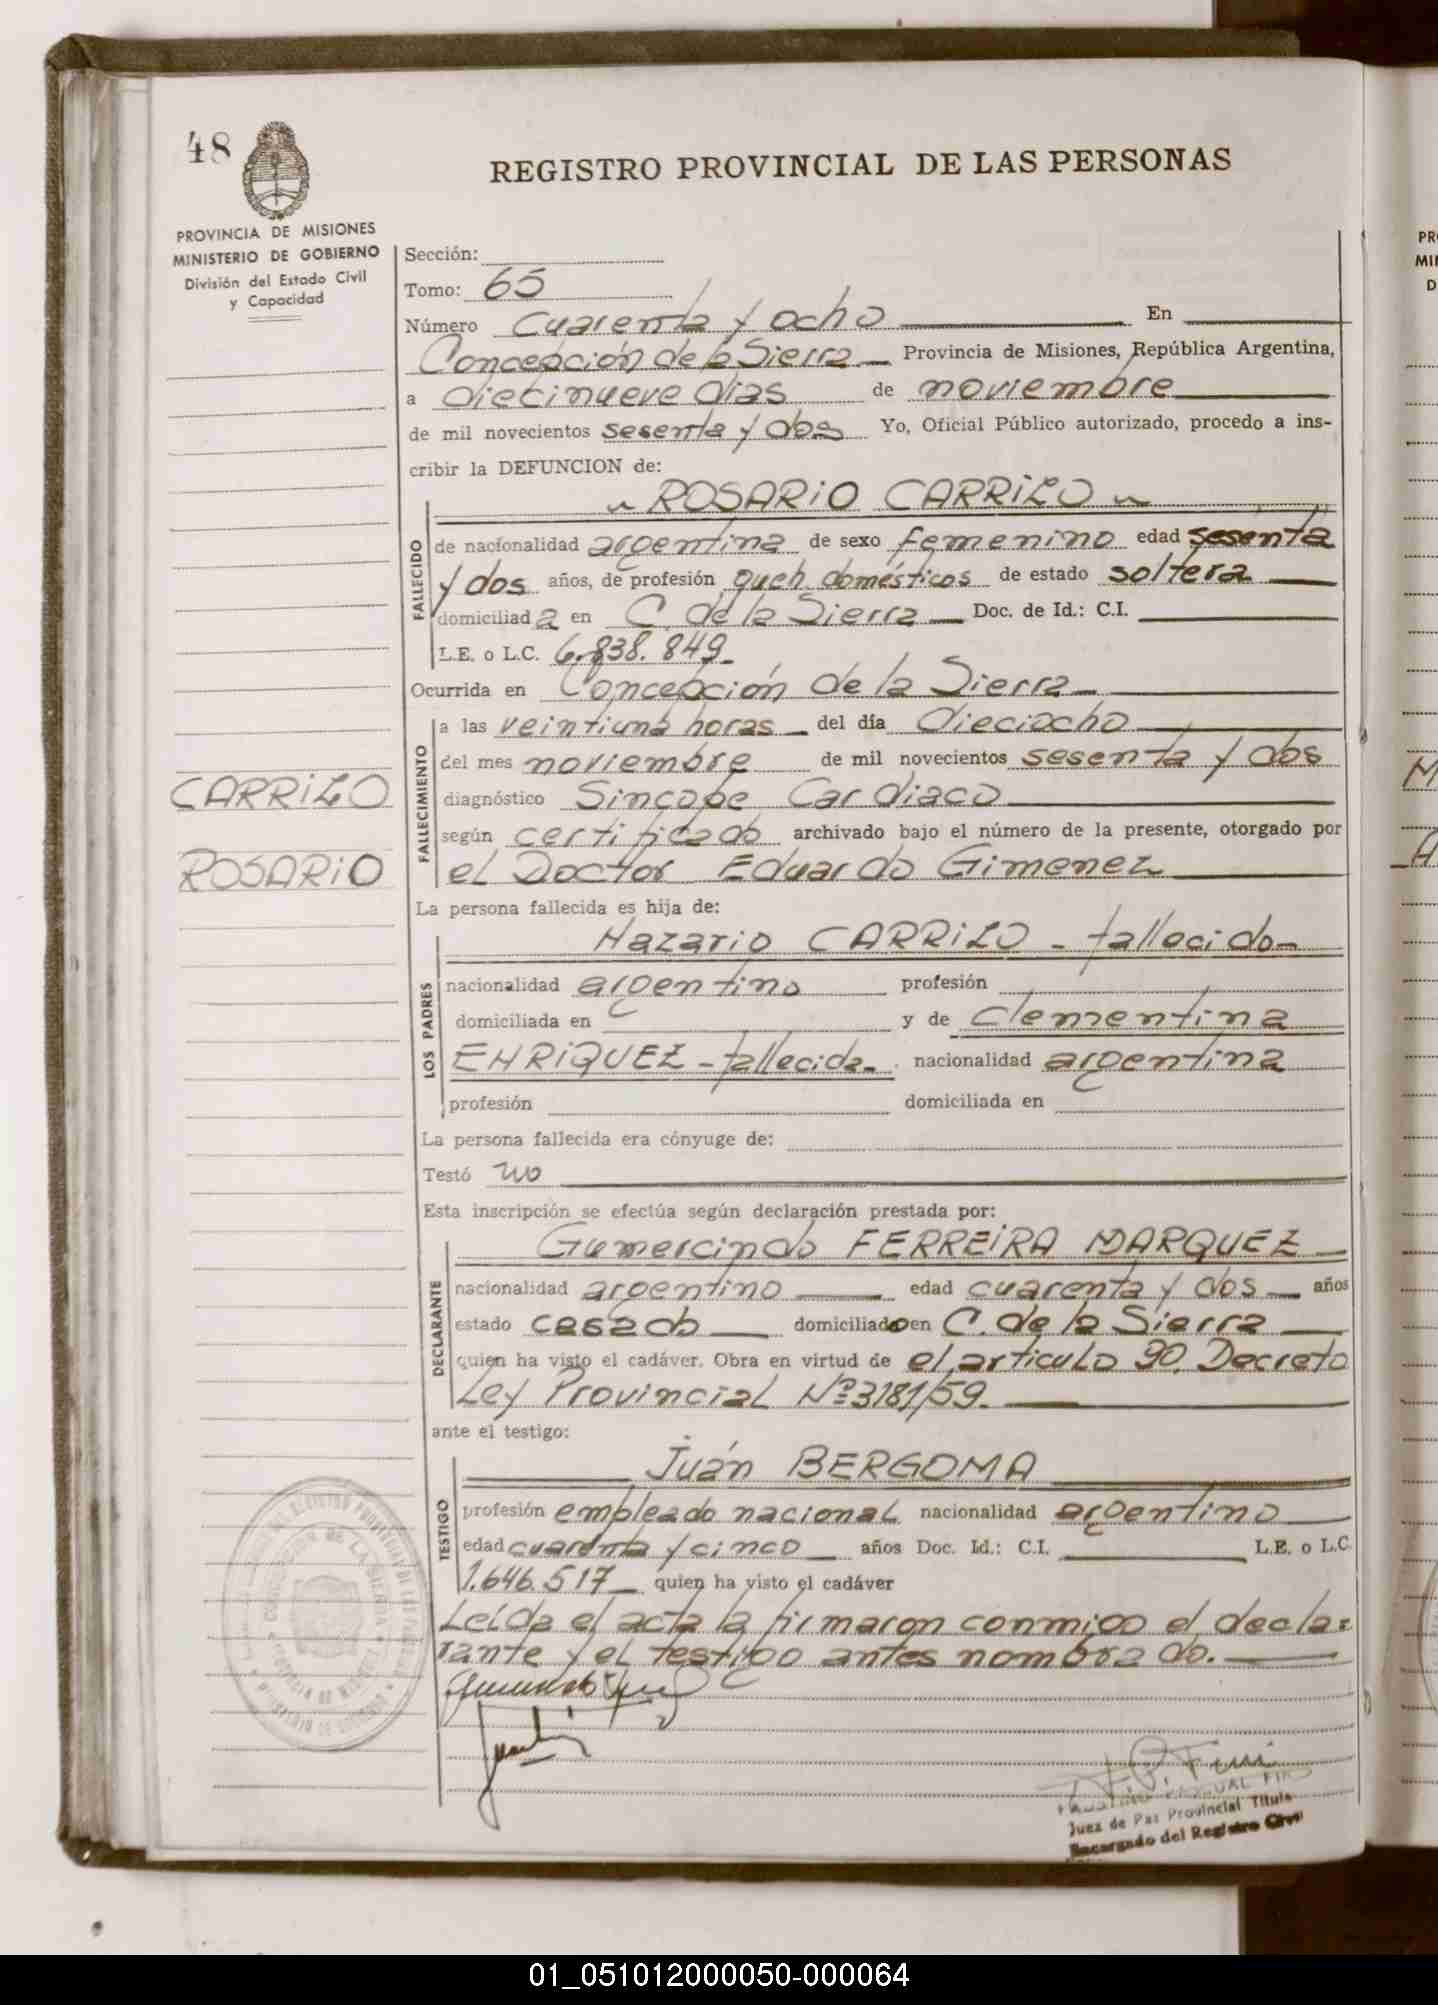 48
REGISTRO PROVINCIAL DE LAS PERSONAS
PROVINCIA DE MISIONES
MINISTERIO DE GOBIERNO
División del Estado Civil
y Capacidad
Sección:
Tomo: 65
Número Cuarenta y ocho En
Concepción de la Sierra Provincia de Misiones, República Argentina,
a diecinueve dias de noviembre
de mil novecientos sesenta y dos Yo, Oficial Público autorizado, procedo a ins-
cribir la DEFUNCION de:
ROSARIO CARRILO
FALLECIDO
de nacionalidad argentina de sexo femenino edad sesenta
y dos años, de profesión queh. domésticos de estado soltera
domiciliada en C. de la Sierra Doc. de Id.: C.I.
L.E. o L.C. 6.838.849
Ocurrida en Concepción de la Sierra
FALLECIMIENTO
a las veintiuna horas del día dieciocho
del mes noviembre de mil novecientos sesenta y dos
diagnóstico Sincope Cardiaco
según certificado archivado bajo el número de la presente, otorgado por
el Doctor Eduardo Gimenez
CARRILO
ROSARIO
La persona fallecida es hija de:
LOS PADRES
Nazario CARRILO - fallecido
nacionalidad argentino profesión
domiciliada en y de Clementina
ENRIQUEZ - fallecida nacionalidad argentina
profesión domiciliada en
La persona fallecida era cónyuge de:
Testó no
Esta inscripción se efectúa según declaración prestada por:
DECLARANTE
Gumercindo FERREIRA MARQUEZ
nacionalidad argentino edad cuarenta y dos años
estado casado domiciliado en C. de la Sierra
quien ha visto el cadáver. Obra en virtud de el articulo 90, Decreto
Ley Provincial Nº 3181/59.
ante el testigo:
TESTIGO
Juán BERGOMA
profesión empleado nacional nacionalidad argentino
edad cuarenta y cinco años Doc. Id.: C.I. L.E. o L.C.
1.646.517 quien ha visto el cadáver
Leida el acta la firmaron conmigo el decla-
rante y el testigo antes nombrado.
Juez de Paz Provincial Titula
Encargado del Registro Civil
01_051012000050-000064